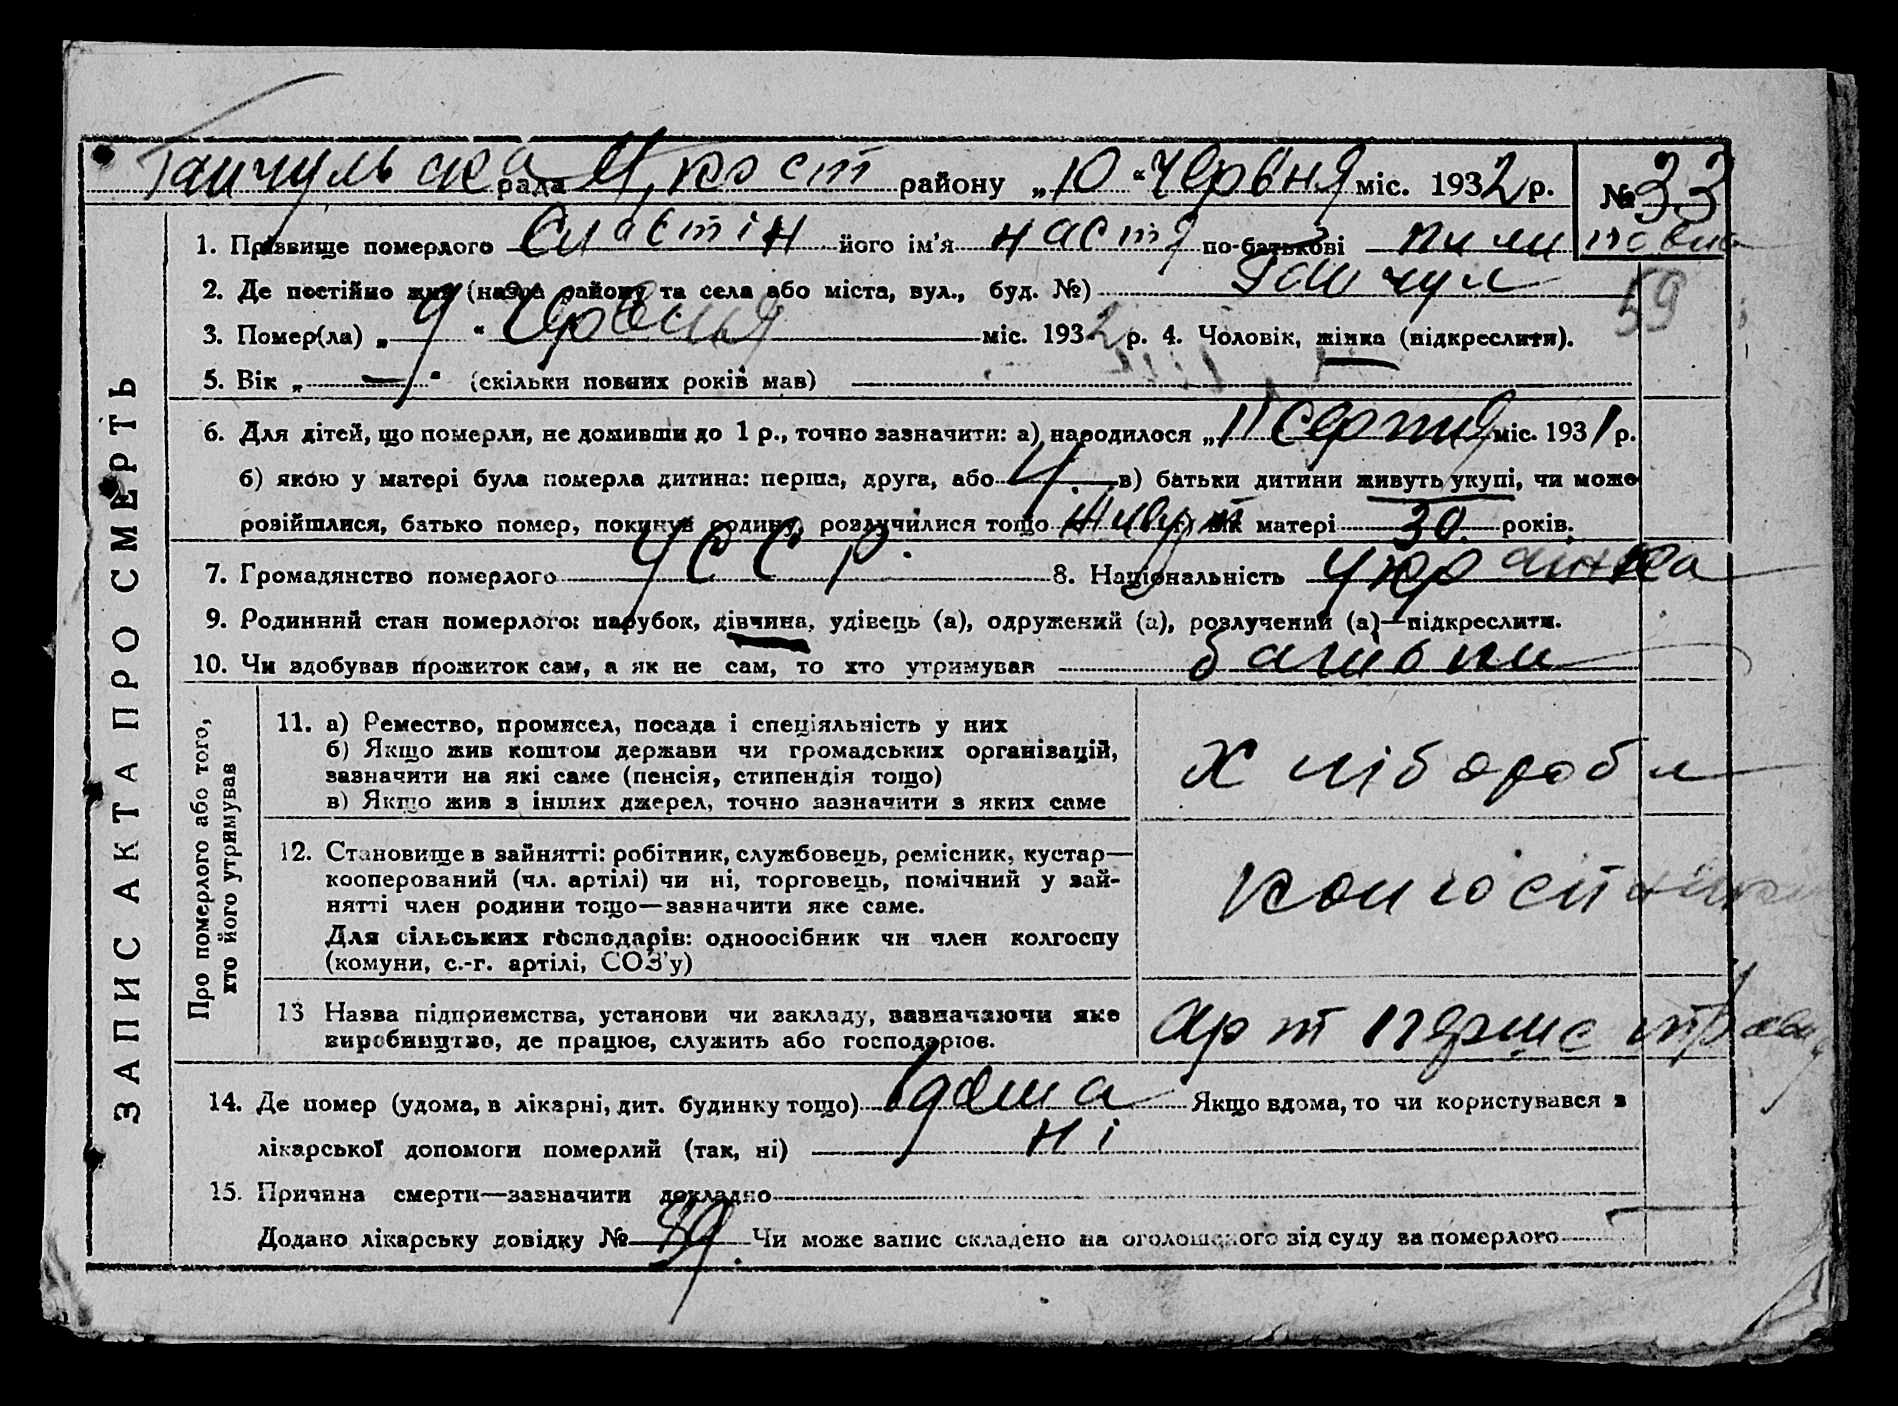 Гайчульска рада Ч, кост району „10“ червня міс. 1932 р. № 33
1. Прізвище померлого Сластін його ім'я настя по-батькові пили повна
2. Де постійно жив (назва району та села або міста, вул., буд. №) Гаичул
59
3. Помер(ла) „9“ Червня міс. 1932 р. 4. Чоловік, жінка (підкреслити).
5. Вік „—“ (скільки повних років мав)
6. Для дітей, що померли, не доживши до 1 р., точно зазначити: а) народилося „11 серпня міс. 1931 р.
б) якою у матері була померла дитина: перша, друга, або 4. в) батьки дитини живуть укупі, чи може
розійшлися, батько помер, покинув родину, розлучилися тощо живут вік матері 30 років.
7. Громадянство померлого УССР. 8. Національність Украинка
9. Родинний стан померлого: парубок, дівчина, удівець (а), одружений (а), розлучений (а)—підкреслити.
10. Чи здобував прожиток сам, а як не сам, то хто утримував батьки
ЗАПИС АКТА ПРО СМЕРТЬ
Про померлого або того,
хто його утримував
11. а) Ремество, промисел, посада і спеціяльність у них
б) Якщо жив коштом держави чи громадських організацій,
зазначити на які саме (пенсія, стипендія тощо)
в) Якщо жив з інших джерел, точно зазначити з яких саме
хлібороб
12. Становище в зайнятті: робітник, службовець, ремісник, кустар—
кооперований (чл. артілі) чи ні, торговець, помічний у зай-
нятті член родини тощо—зазначити яке саме.
Для сільських господарів: одноосібник чи член колгоспу
(комуни, с.-г. артілі, СОЗ'у)
13 Назва підприємства, установи чи закладу, зазначаючи яке
виробництво, де працює, служить або господарює.
арт перше
14. Де помер (удома, в лікарні, дит. будинку тощо) вдома Якщо вдома, то чи користувався з
лікарської допомоги померлий (так, ні) ні
15. Причина смерти—зазначити докладно
Додано лікарську довідку № 59. Чи може запис складено на оголошеного від суду за померлого